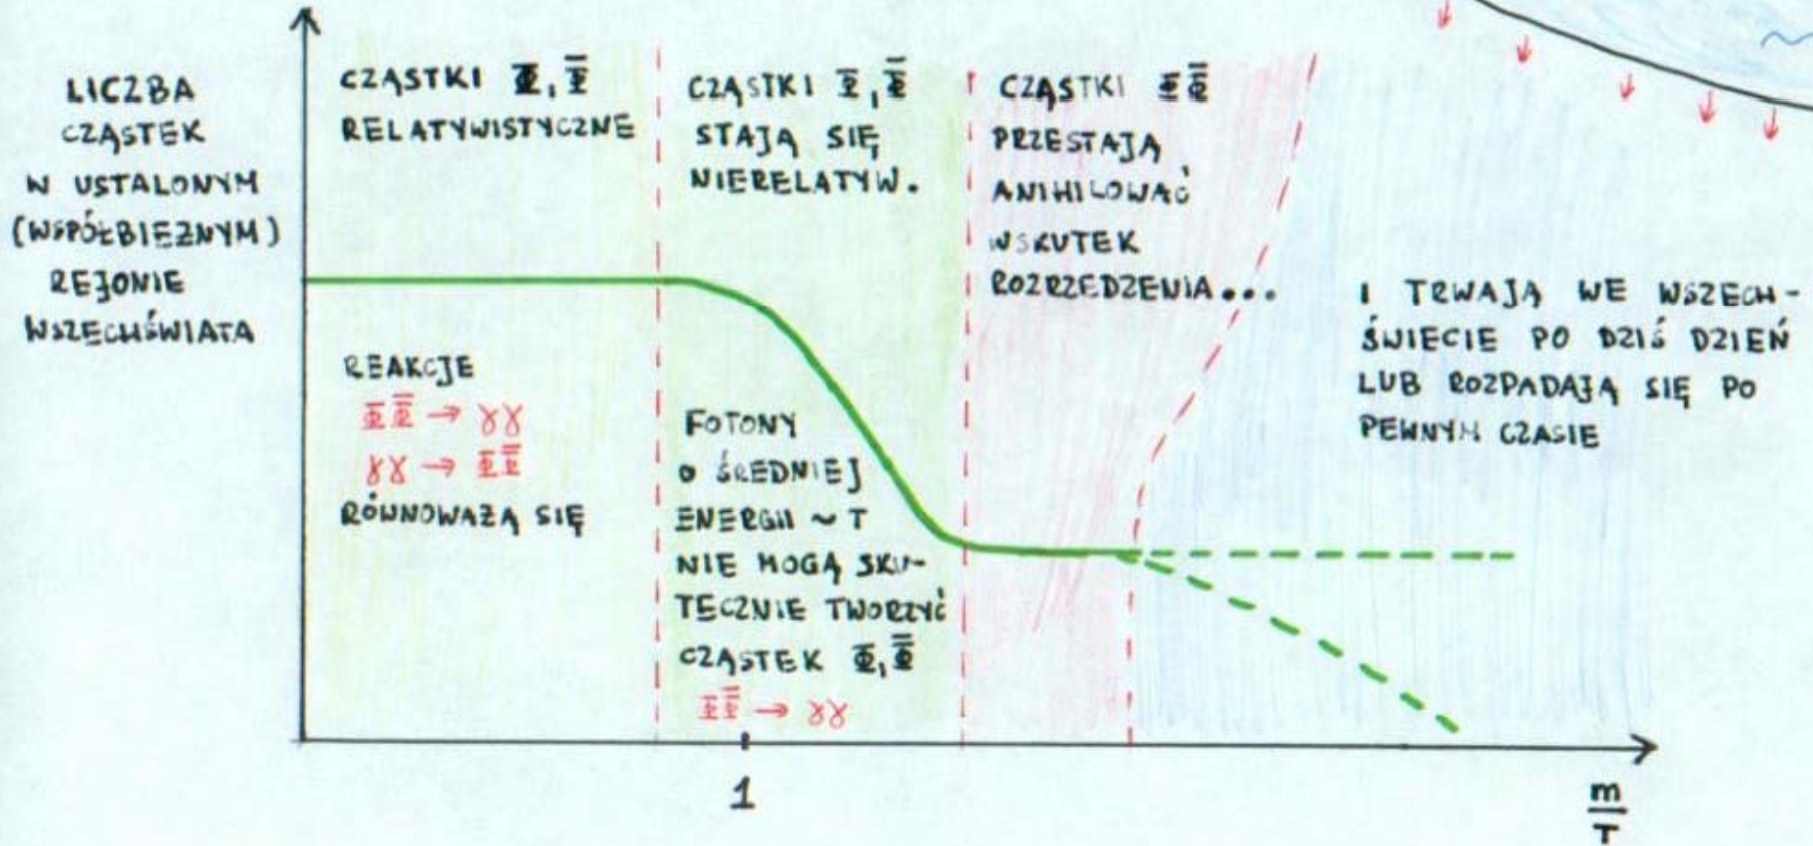 LICZBA
CZĄSTEK
W USTALONYM
(WSPÓŁBIEŻNYM)
REJONIE
WSZECHŚWIATA
CZĄSTKI Φ, Φ̅
RELATYWISTYCZNE
REAKCJE
ΦΦ̅ → γγ
γγ → ΦΦ̅
RÓWNOWAŻĄ SIĘ
CZĄSTKI Φ, Φ̅
STAJĄ SIĘ
NIERELATYW.
FOTONY
O ŚREDNIEJ
ENERGII ~ T
NIE MOGĄ SKU-
TECZNIE TWORZYĆ
CZĄSTEK Φ, Φ̅
ΦΦ̅ → γγ
CZĄSTKI ΦΦ̅
PRZESTAJĄ
ANIHILOWAĆ
WSKUTEK
ROZRZEDZENIA...
I TRWAJĄ WE WSZECH-
ŚWIECIE PO DZIŚ DZIEŃ
LUB ROZPADAJĄ SIĘ PO
PEWNYM CZASIE
1
m
T